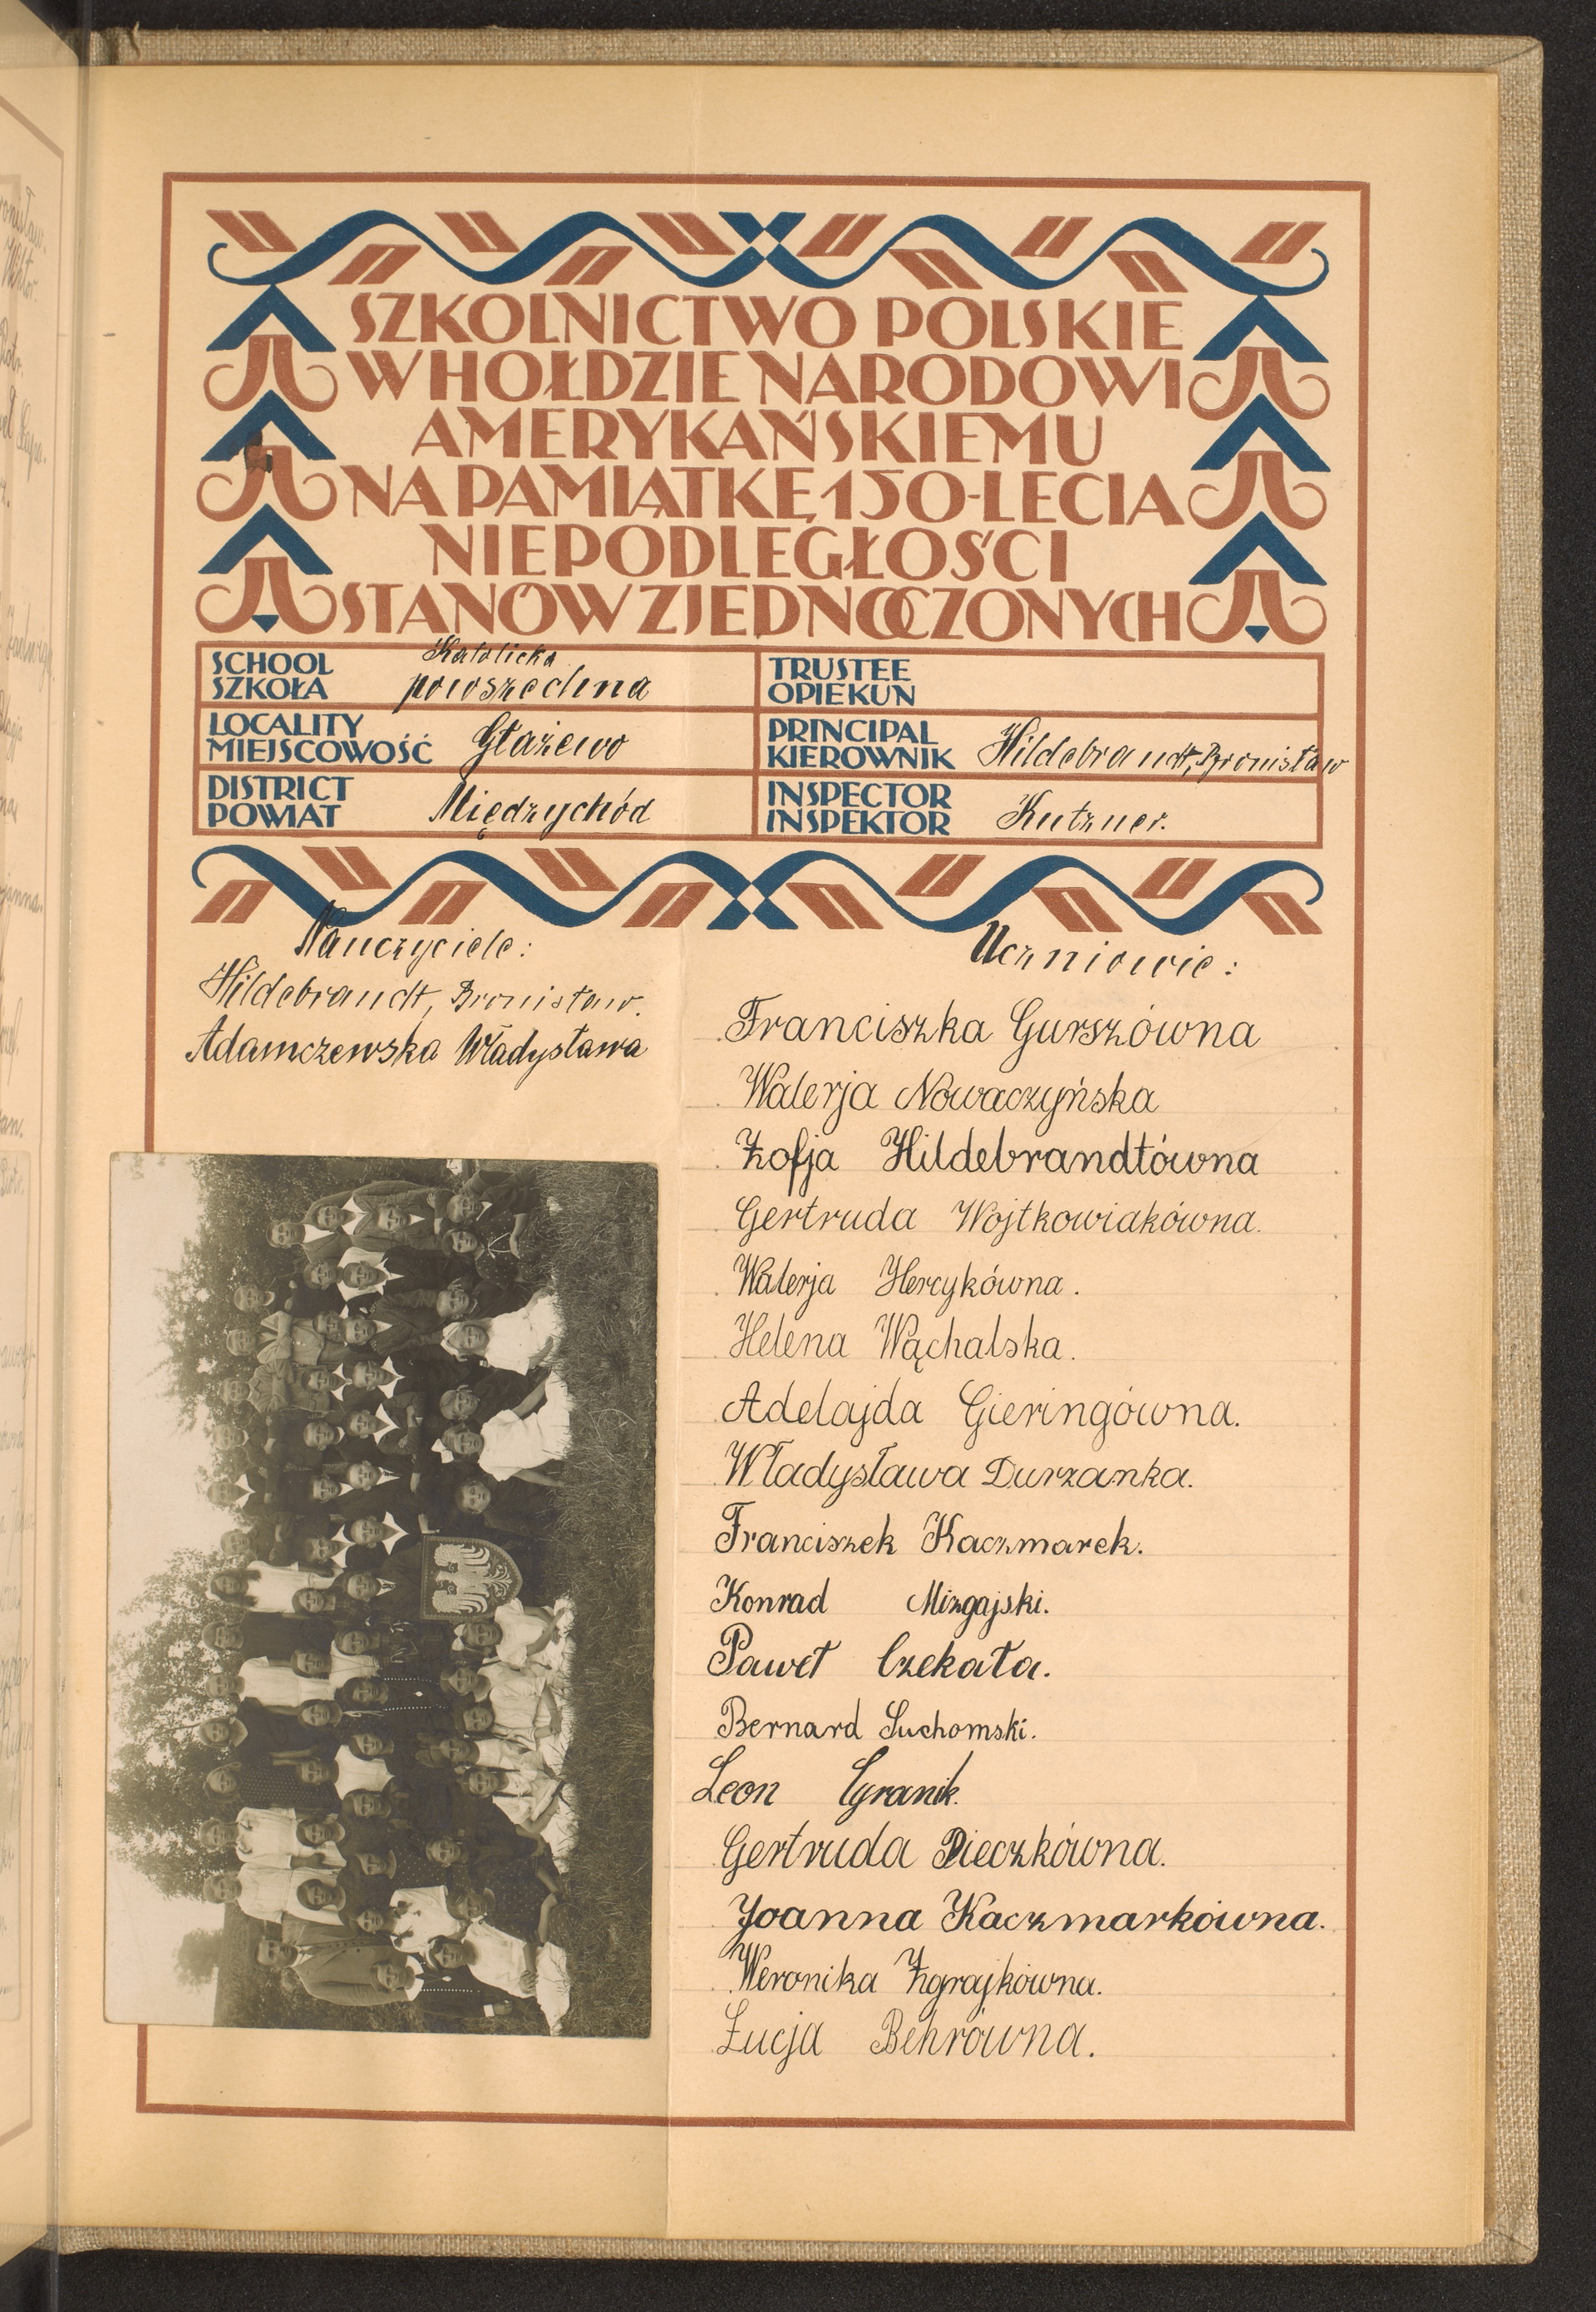 SZKOLNICTWO POLSKIE
W HOŁDZIE NARODOWI
AMERYKAŃSKIEMU
NA PAMIĄTKĘ 150-LECIA
NIEPODLEGŁOŚCI
STANÓW ZJEDNOCZONYCH
SCHOOL
SZKOŁA
Katolicka
powszechna
TRUSTEE
OPIEKUN
LOCALITY
MIEJSCOWOŚĆ
Głażewo
PRINCIPAL
KIEROWNIK
Hildebrandt, Bronisław
DISTRICT
POWIAT
Międzychód
INSPECTOR
INSPEKTOR
Kutzner.
Nauczyciele:
Hildebrandt, Bronisław.
Adamczewska Władysława
Uczniowie:
Franciszka Gurszówna
Walerja Nowaczyńska
Zofja Hildebrandtówna
Gertruda Wojtkowiakówna.
Walerja Hercykówna.
Helena Wąchalska.
Adelajda Gieringówna.
Władysława Durzanka.
Franciszek Kaczmarek.
Konrad Mizgajski.
Paweł Czekała.
Bernard Suchomski.
Leon Cyranik.
Gertruda Pieczkówna.
Joanna Kaczmarkówna.
Weronika Zgrajkówna.
Łucja Behrówna.